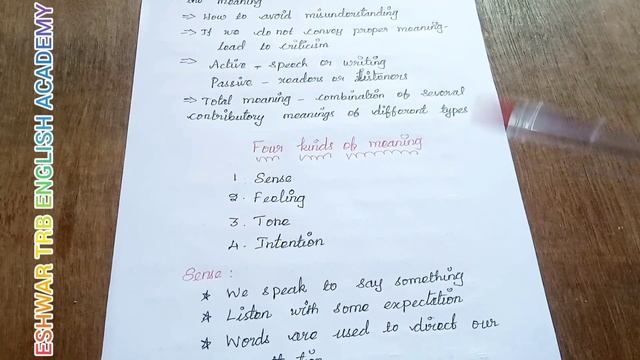 the meaning
⇒ How to avoid misunderstanding
⇒ If we do not convey proper meaning-
lead to criticism
⇒ Active + speech or writing
Passive - readors or listeners
⇒ Total meaning - combination of several
contributory meanings of different types
Four kinds of meaning
1. Sense
2. Feeling
3. Tone
4. Intention
Sense :
* We speak to say something
* Listen with some expectation
* Words are used to direct our
ESHWAR TRB ENGLISH ACADEMY